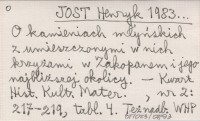 JOST Henryk 1983...
O kamieniach młyńskich
z umieszczonymi w nich
krzyżami w Zakopanem i jego
najbliższej okolicy. — Kwart.
Hist. Kult. Mater. , nr 2:
217-219, tabl. 4. Też nadb. WHP